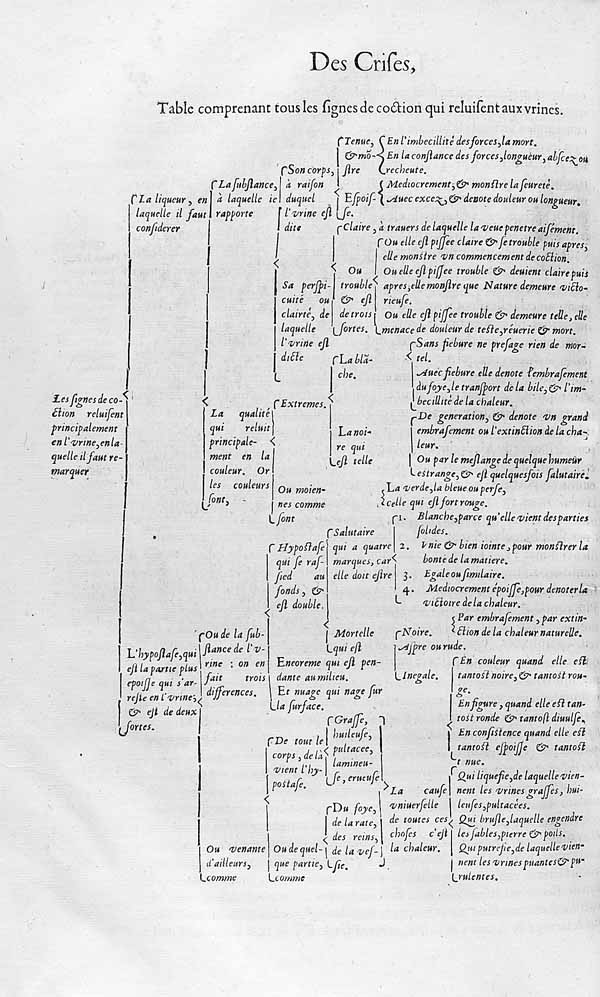 Des Crises,
Table comprenant tous les signes de coction qui reluisent aux vrines.
Les signes de co-
ction reluisent
principalement
en l'vrine, en la-
quelle il faut re-
marquer
La liqueur, en
laquelle il faut
considerer
La substance,
à laquelle se
rapporte
Son corps,
à raison
duquel
l'vrine est
dite
Tenue,
& mō-
stre
En l'imbecillité des forces, la mort.
En la constance des forces, longueur, abscez ou
recheute.
Espois-
se.
Mediocrement, & monstre la seureté.
Auec excez, & denote douleur ou longueur.
Sa perspi-
cuité ou
clairté, de
laquelle
l'vrine est
dicte
Claire, à trauers de laquelle la veue penetre aisément.
Ou
trouble
& est
de trois
sortes.
Ou elle est pissee claire & se trouble puis apres,
elle monstre vn commencement de coction.
Ou elle est pissee trouble & deuient claire puis
apres, elle monstre que Nature demeure victo-
rieuse.
Ou elle est pissee trouble & demeure telle, elle
menace de douleur de teste, réuerie & mort.
La qualité
qui reluit
principale-
ment en la
couleur. Or
les couleurs
sont,
Extremes.
La blā-
che.
Sans fiebure ne presage rien de mor-
tel.
Auec fiebure elle denote l'embrasement
du foye, le transport de la bile, & l'im-
becillité de la chaleur.
La noi-
re qui
est telle
De generation, & denote vn grand
embrasement ou l'extinction de la cha-
leur.
Ou par le meslange de quelque humeur
estrange, & est quelquesfois salutaire.
Ou moien-
nes comme
sont
La verde, la bleue ou perse,
celle qui est fort rouge.
L'hypostase, qui
est la partie plus
epoisse qui s'ar-
reste en l'vrine;
& est de deux
sortes.
Ou de la sub-
stance de l'v-
rine : on en
fait trois
differences.
Hypostase
qui se ras-
sied au
fonds, &
est double.
Salutaire
qui a quatre
marques, car
elle doit estre
1. Blanche, parce qu'elle vient des parties
solides.
2. Vnie & bien iointe, pour monstrer la
bonte de la matiere.
3. Egale ou similaire.
4. Mediocrement époisse, pour denoter la
victoire de la chaleur.
Mortelle
qui est
Noire.
Par embrasement, par extin-
ction de la chaleur naturelle.
Aspre ou rude.
Inegale.
En couleur quand elle est
tantost noire, & tantost rou-
ge.
En figure, quand elle est tan-
tost ronde & tantost diuulse.
En consistence quand elle est
tantost espoisse & tantost
tenue.
Eneoreme qui est pen-
dante au milieu.
Et nuage qui nage sur
la surface.
Ou venante
d'ailleurs,
comme
De tout le
corps, de là
vient l'hy-
postase.
Grasse,
huileuse,
pultacee,
lamineu-
se, crueuse
Ou de quel-
que partie,
comme
Du foye,
de la rate,
des reins,
de la ves-
sie.
La cause
vniuerselle
de toutes ces
choses c'est
la chaleur.
Qui liquefie, de laquelle vien-
nent les vrines grasses, hui-
leuses, pultacées.
Qui brusle, laquelle engendre
les sables, pierre & poils.
Qui putrefie, de laquelle vien-
nent les vrines puantes & pu-
rulentes.